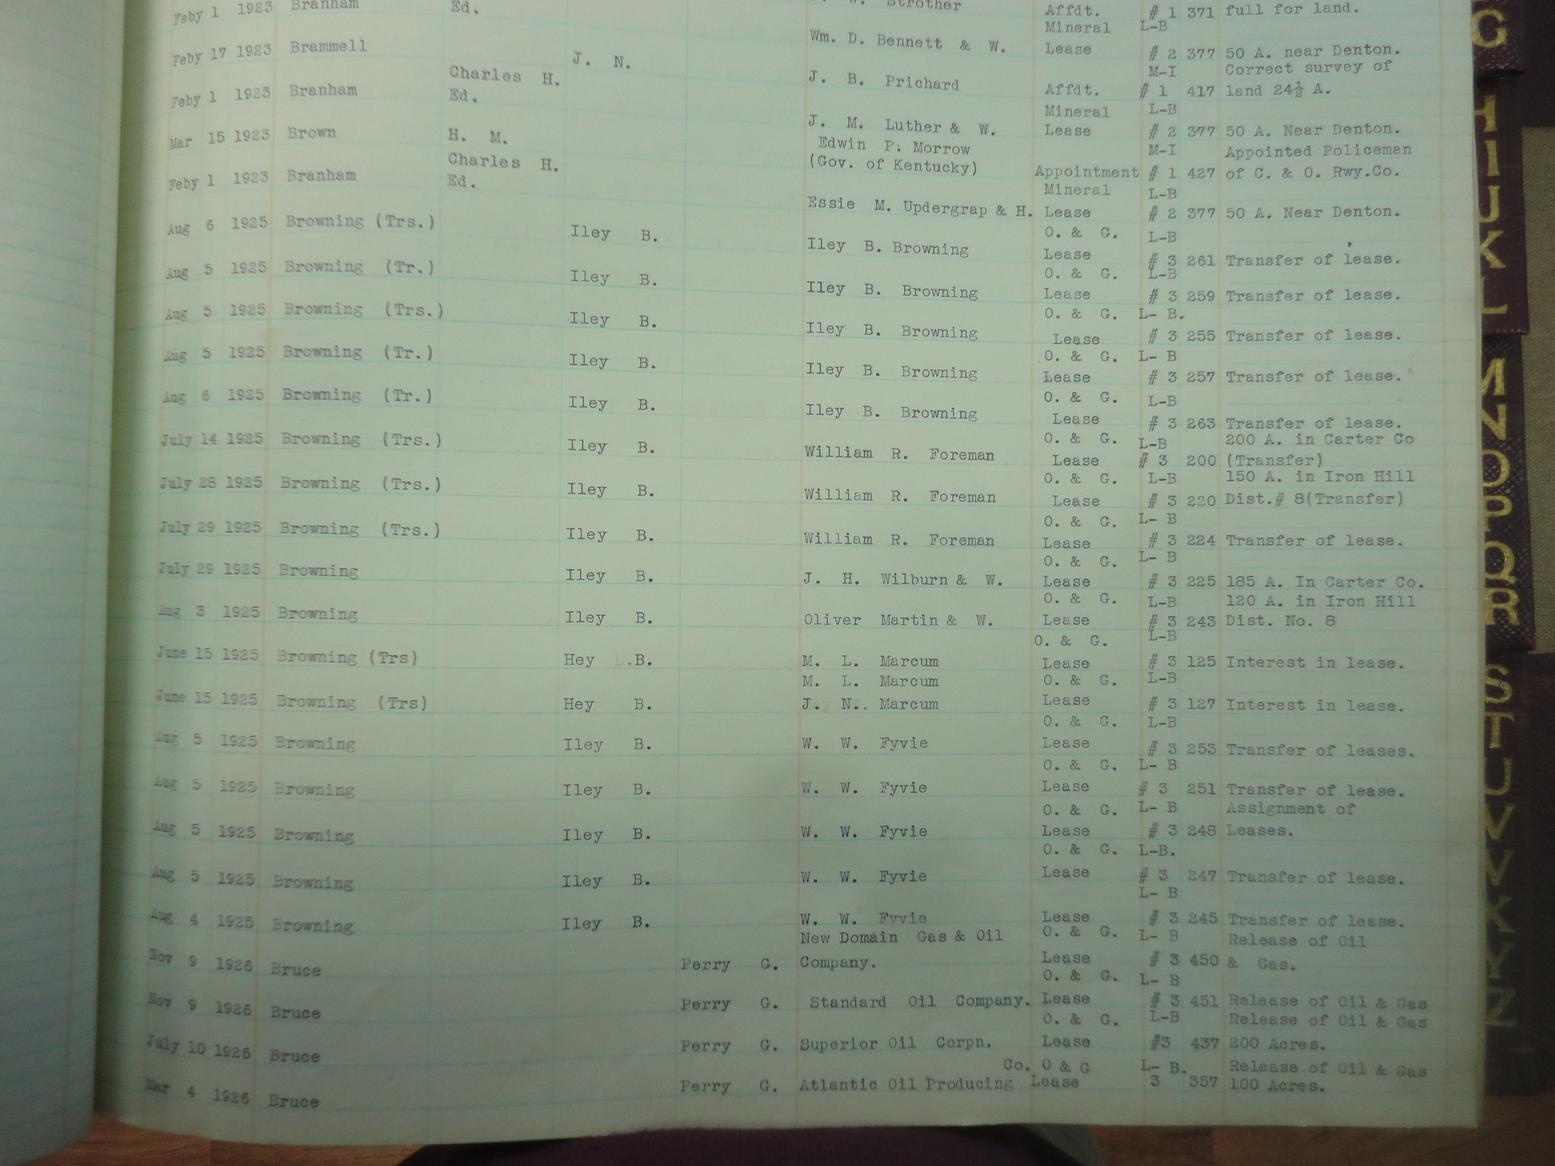 Feby 1 1923 Branham Ed. Strother Affdt. # 1 371 full for land.
Mineral L-B
Feby 17 1923 Brammell J. N. Wm. D. Bennett & W. Lease # 2 377 50 A. near Denton.
Charles H. M-I Correct survey of
Feby 1 1923 Branham Ed. J. B. Prichard Affdt. # 1 417 land 24½ A.
Mineral L-B
Mar 15 1923 Brown H. M. J. M. Luther & W. Lease # 2 377 50 A. Near Denton.
Charles H. Edwin P. Morrow M-I Appointed Policeman
Feby 1 1923 Branham Ed. (Gov. of Kentucky) Appointment # 1 427 of C. & O. Rwy.Co.
Mineral L-B
Essie M. Updergrap & H. Lease # 2 377 50 A. Near Denton.
O. & G. L-B
Aug 6 1925 Browning (Trs.) Iley B. Iley B. Browning Lease # 3 261 Transfer of lease.
O. & G. L-B
Aug 5 1925 Browning (Tr.) Iley B. Iley B. Browning Lease # 3 259 Transfer of lease.
O. & G. L- B.
Aug 5 1925 Browning (Trs.) Iley B. Iley B. Browning Lease # 3 255 Transfer of lease.
O. & G. L- B
Aug 5 1925 Browning (Tr.) Iley B. Iley B. Browning Lease # 3 257 Transfer of lease.
O. & G. L-B
Aug 6 1925 Browning (Tr.) Iley B. Iley B. Browning Lease # 3 263 Transfer of lease.
O. & G. L-B 200 A. in Carter Co
July 14 1925 Browning (Trs.) Iley B. William R. Foreman Lease # 3 200 (Transfer)
O. & G. L-B 150 A. in Iron Hill
July 28 1925 Browning (Trs.) Iley B. William R. Foreman Lease # 3 220 Dist.# 8(Transfer)
O. & G. L- B
July 29 1925 Browning (Trs.) Iley B. William R. Foreman Lease # 3 224 Transfer of lease.
O. & G. L- B
July 29 1925 Browning Iley B. J. H. Wilburn & W. Lease # 3 225 185 A. In Carter Co.
O. & G. L-B 120 A. in Iron Hill
Aug 3 1925 Browning Iley B. Oliver Martin & W. Lease # 3 243 Dist. No. 8
O. & G. L-B
June 15 1925 Browning (Trs) Hey B. M. L. Marcum Lease # 3 125 Interest in lease.
M. L. Marcum O. & G. L-B
June 15 1925 Browning (Trs) Hey B. J. N. Marcum Lease # 3 127 Interest in lease.
O. & G. L-B
Aug 5 1925 Browning Iley B. W. W. Fyvie Lease # 3 253 Transfer of leases.
O. & G. L- B
Aug 5 1925 Browning Iley B. W. W. Fyvie Lease # 3 251 Transfer of lease.
O. & G. L- B Assignment of
Aug 5 1925 Browning Iley B. W. W. Fyvie Lease # 3 248 Leases.
O. & G. L-B.
Aug 5 1925 Browning Iley B. W. W. Fyvie Lease # 3 247 Transfer of lease.
L- B
Aug 4 1925 Browning Iley B. W. W. Fyvie Lease # 3 245 Transfer of lease.
New Domain Gas & Oil O. & G. L- B Release of Oil
Nov 9 1926 Bruce Perry G. Company. Lease # 3 450 & Gas.
O. & G. L- B
Nov 9 1926 Bruce Perry G. Standard Oil Company. Lease # 3 451 Release of Oil & Gas
O. & G. L-B Release of Oil & Gas
July 10 1926 Bruce Perry G. Superior Oil Corpn. Lease #3 437 200 Acres.
Co. O & G L- B. Release of Oil & Gas
Mar 4 1926 Bruce Perry G. Atlantic Oil Producing Lease 3 357 100 Acres.
G
H
I
J
K
L
M
N
O
P
Q
R
S
T
U
V
W
X
Y
Z